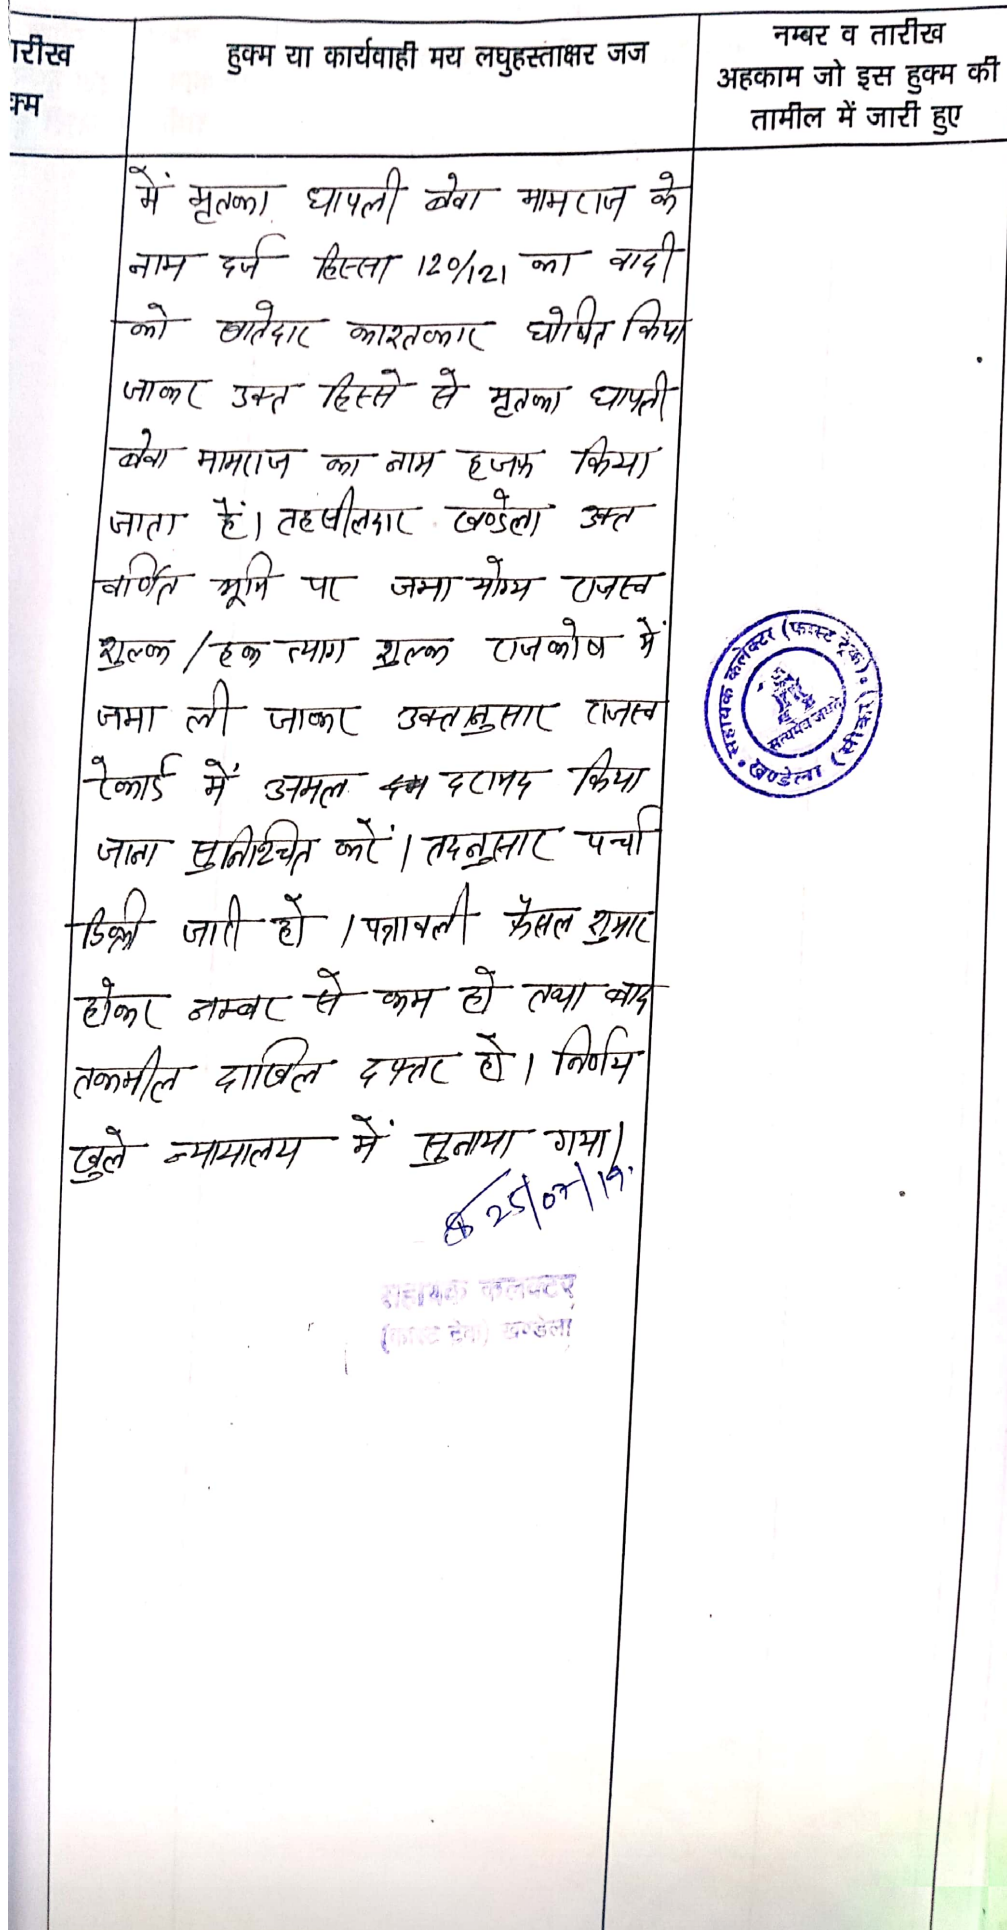 ारीख
क्म
हुक्म या कार्यवाही मय लघुहस्ताक्षर जज
नम्बर व तारीख
अहकाम जो इस हुक्म की
तामील में जारी हुए
में मृतका धापली बेवा मामराज के
नाम दर्ज हिस्सा 120/121 का वादी
को खातेदार काश्तकार घोषित किया
जाकर उक्त हिस्से से मृतका धापली
बेवा मामराज का नाम हजफ किया
जाता हैं। तहसीलदार खण्डेला उक्त
वर्णित भूमि पर जमा योग्य राजस्व
शुल्क / हक त्याग शुल्क राजकोष में
जमा ली जाकर उक्तानुसार राजस्व
रेकार्ड में अमल दरामद किया
जाना सुनिश्चित करें। तदनुसार पर्चा
डिक्री जारी हो । पत्रावली फैसल शुमार
होकर नम्बर से कम हो तथा बाद
तकमील दाखिल दफ्तर हो। निर्णय
खुले न्यायालय में सुनाया गया।
25/07/19.
सहायक कलेक्टर
(फास्ट ट्रेक) खण्डेला
सहायक कलेक्टर (फास्ट ट्रेक)
खण्डेला (सीकर)
सत्यमेव जयते